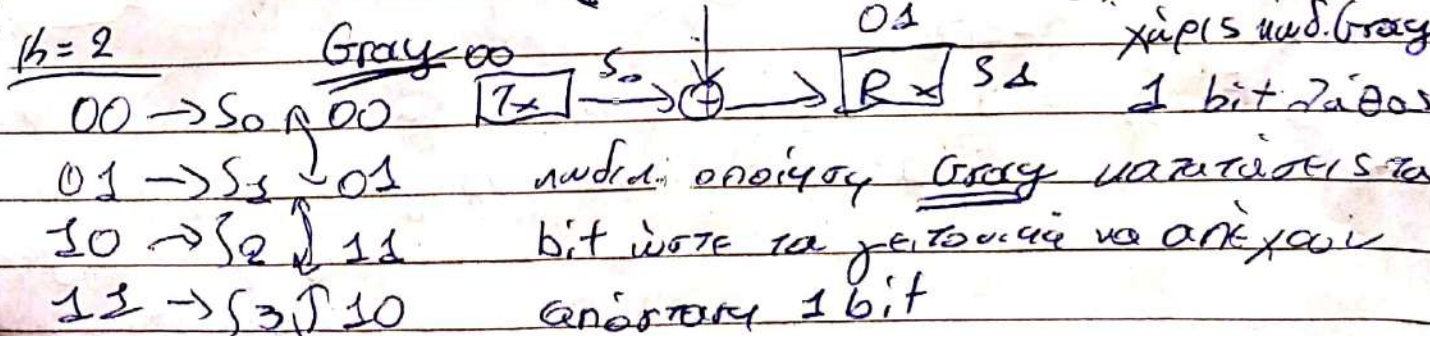 01 χωρίς κωδ. Gray
k=2 Gray 00 S₀
00 → S₀ 00 Tx → ⊕ → Rx S1 1 bit λάθος
01 → S₁ 01 κωδικοποίηση Gray κατατάσσεις τα
10 → S₂ 11 bit ώστε τα γειτονικά να απέχουν
11 → S₃ 10 απόσταση 1 bit